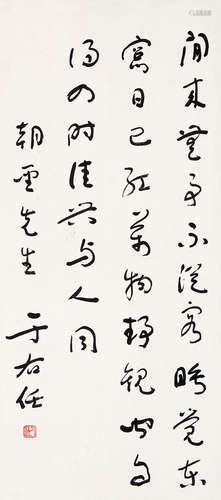 閒來無事不從容睡覺東
窗日已紅萬物靜觀皆自
得四時佳興与人同
朝雲先生
于右任